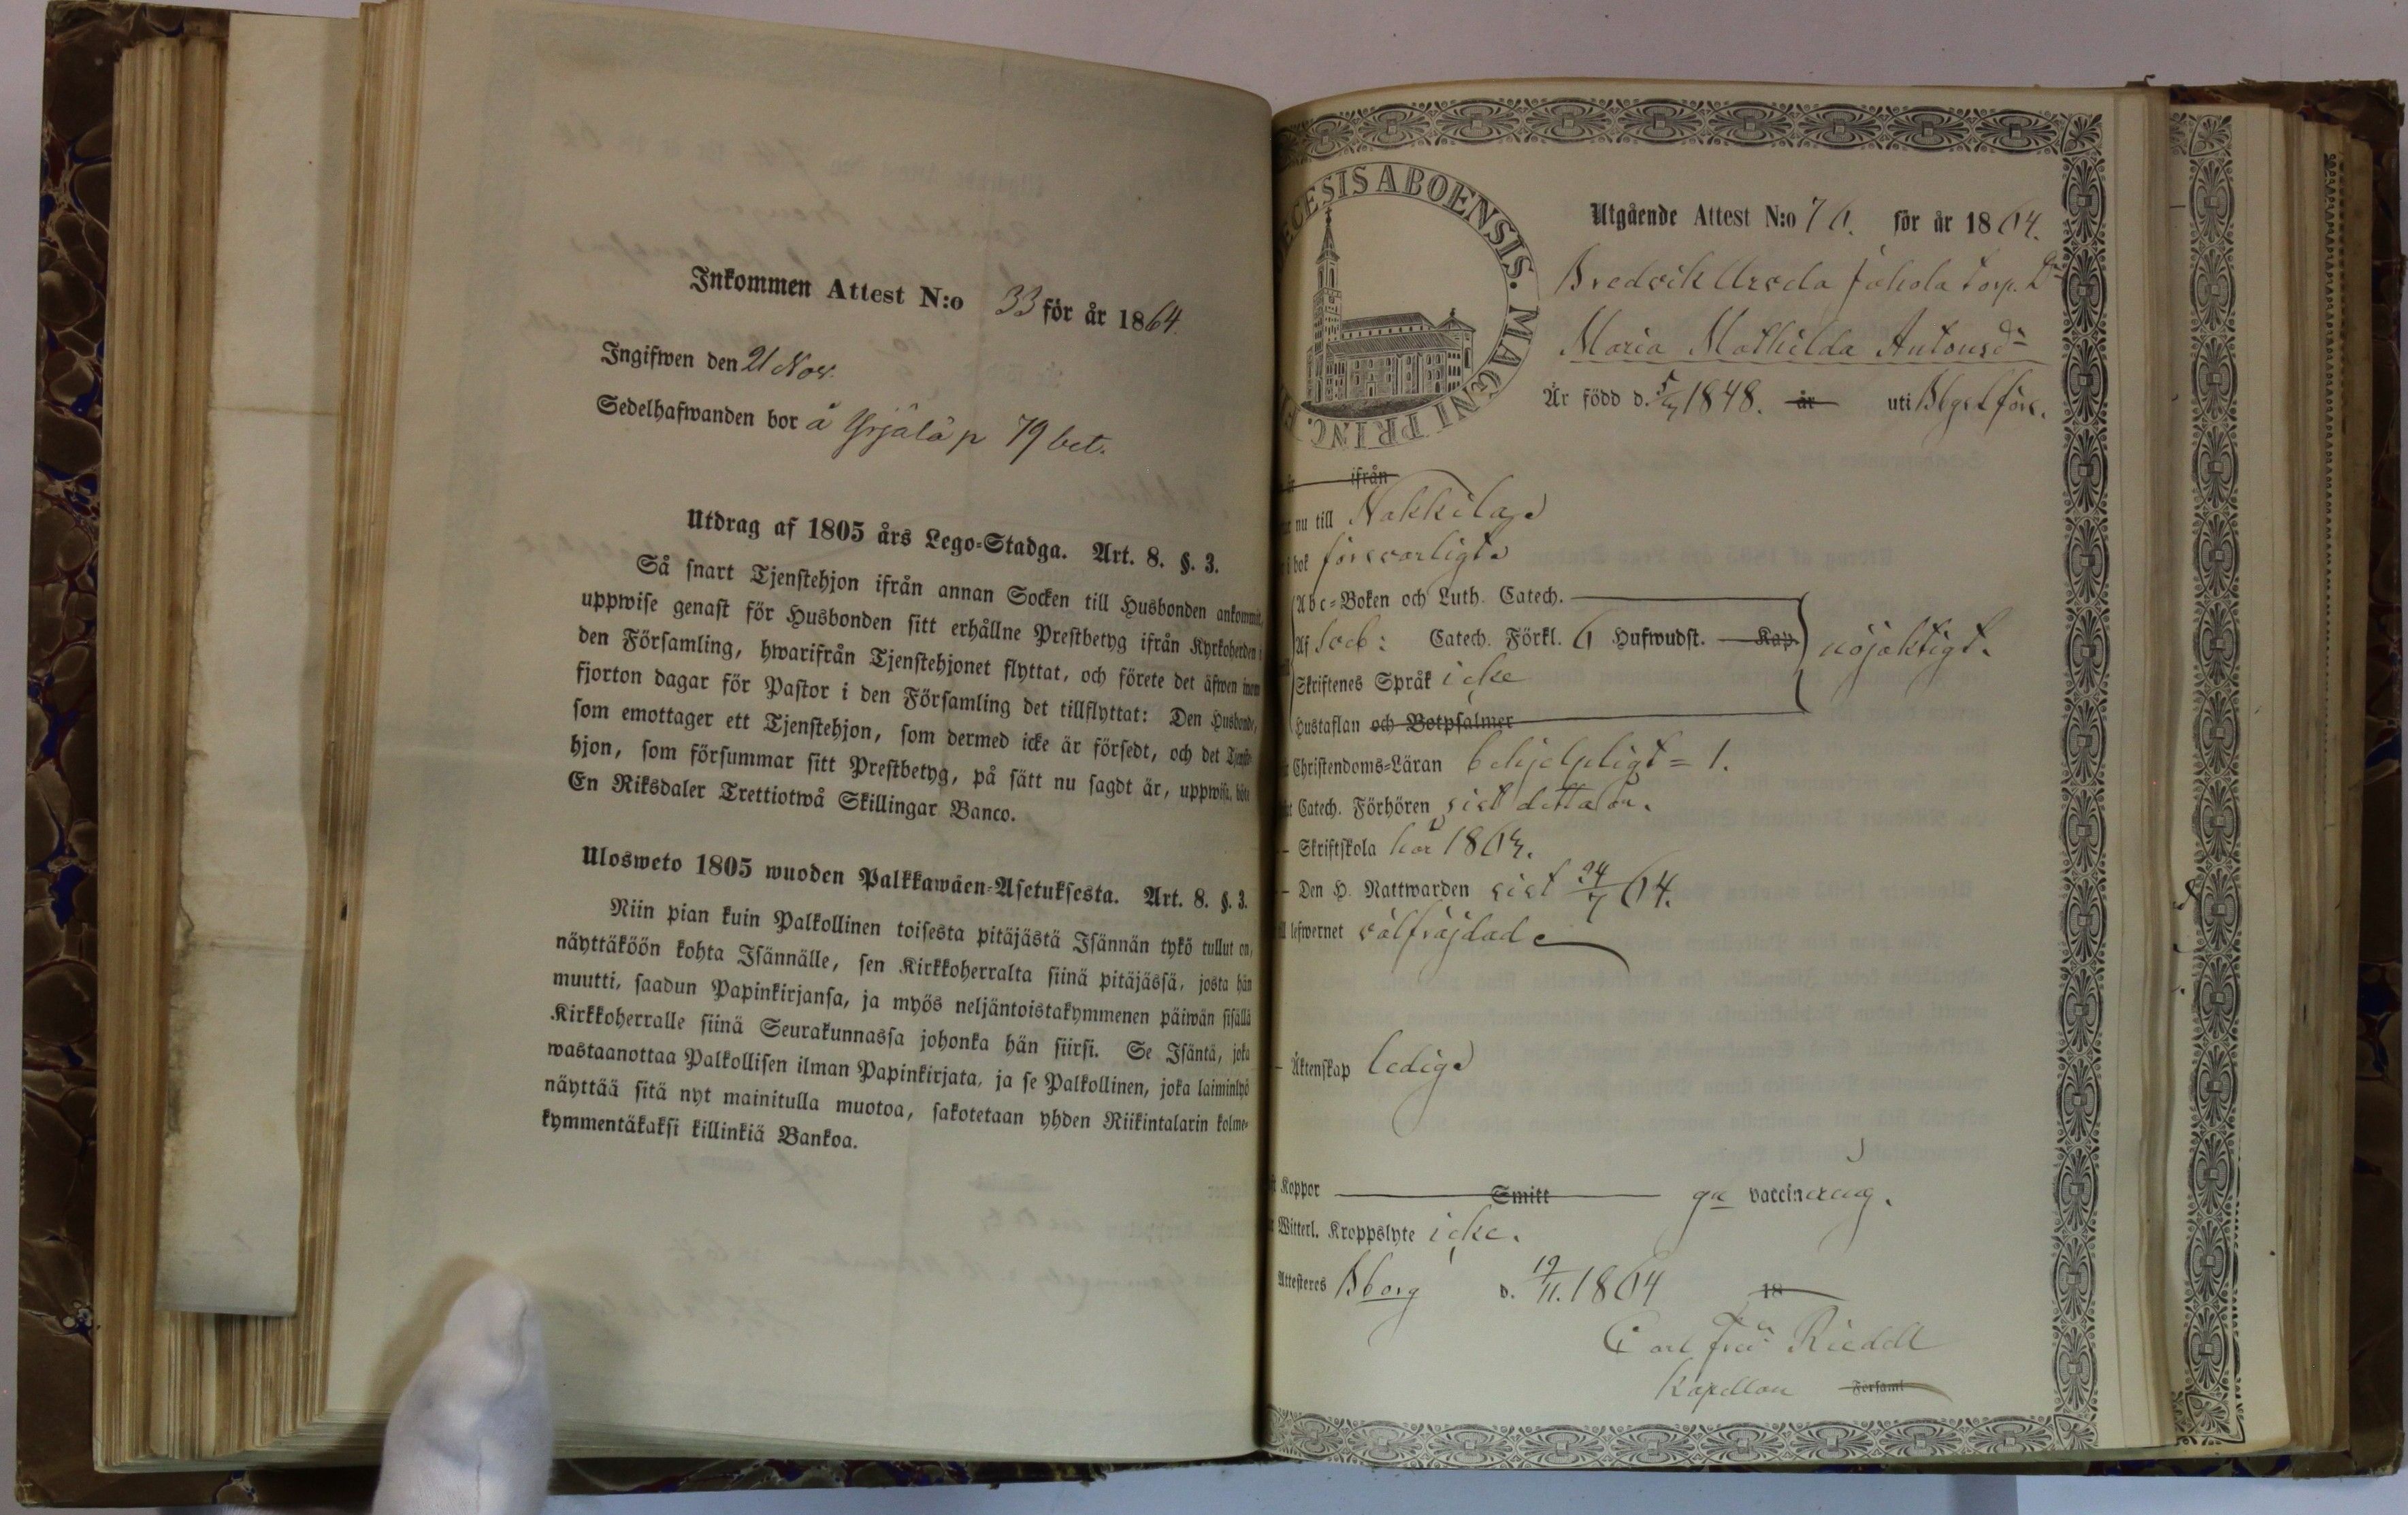 Inkommen Attest N:o 33 för år 1864.
Ingifwen den 21 Nov.
Sedelhafwanden bor å Yrjälä p 79 bet.
Utdrag af 1805 års Lego-Stadga. Art. 8. §. 3.
Så snart Tjenstehjon ifrån annan Socken till Husbonden ankommit,
uppwise genast för Husbonden sitt erhållne Prestbetyg ifrån Kyrkoherden i
den Församling, hwarifrån Tjenstehjonet flyttat, och förete det äfwen inom
fjorton dagar för Pastor i den Församling det tillflyttat: Den Husbonde,
som emottager ett Tjenstehjon, som dermed icke är försedt, och det Tjenste-
hjon, som försummar sitt Prestbetyg, på sätt nu sagdt är, uppwisa, böte
En Riksdaler Trettiotwå Skillingar Banco.
Ulosweto 1805 wuoden Palkkawäen-Asetuksesta. Art. 8. §. 3.
Niin pian kuin Palkollinen toisesta pitäjästä Isännän tykö tullut on,
näyttäköön kohta Isännälle, sen Kirkkoherralta siinä pitäjässä, josta hän
muutti, saadun Papinkirjansa, ja myös neljäntoistakymmenen päiwän sisällä
Kirkkoherralle siinä Seurakunnassa johonka hän siirsi. Se Isäntä, joka
wastaanottaa Palkollisen ilman Papinkirjata, ja se Palkollinen, joka laiminlyö
näyttää sitä nyt mainitulla muotoa, sakotetaan yhden Riikintalarin kolme-
kymmentäkaksi killinkiä Bankoa.
ECESIS ABOENSIS. MAGNI PRINC.
Utgående Attest N:o 76. för år 1864.
Bredvik Arvela Johola torp. D:r
Maria Mathilda Antonsd:r
Är född d. 1848. år uti
ifrån
nu till Nakkila
bok försvarligt
Abc-Boken och Luth. Catech.
Af Sveb: Catech. Förkl. 6 Hufwudst. Kap. nöjaktigt.
Skriftenes Språk icke
Hustaflan och Botpsalmer
Christendoms-Läran behjelpligt = 1.
Catech. Förhören sist detta år.
Skriftskola här 1863.
Den H. Nattwarden sist 24/7 64.
lefwernet välfräjdad
Äktenskap ledig
Koppor Smitt gn vaccinering.
Witterl. Kroppslyte icke.
Attesteres Bborg d. 19/11. 1864 18
Carl Fred Riddell
Kapellan Församl